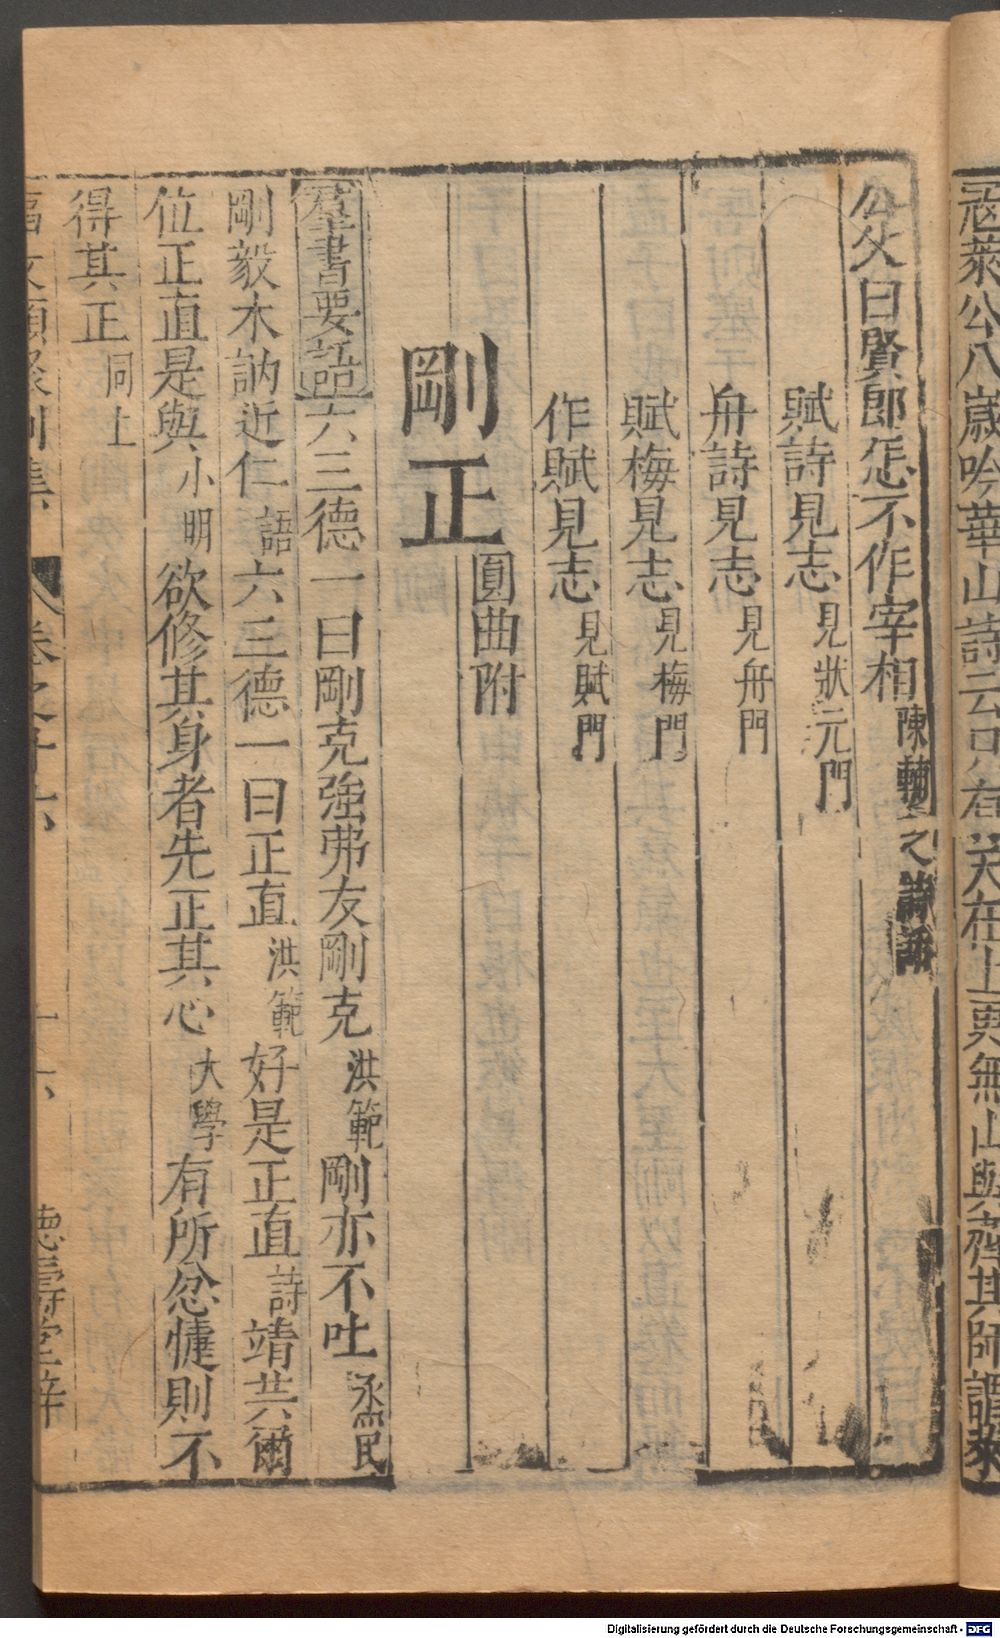 寇萊公八歲吟華山詩云只有天在上更無山與齊其師謂萊
公父曰賢郎怎不作宰相陳輔之詩話
賦詩見志見狀元門
舟詩見志見舟門
賦梅見志見梅門
作賦見志見賦門
剛正圓曲附
羣書要語六三德一曰剛克強弗友剛克洪範剛亦不吐烝民
剛毅木訥近仁語六三德一曰正直洪範好是正直詩靖共爾
位正直是與小明欲修其身者先正其心大學有所忿懥則不
得其正同上
文類聚別集 卷之十六 十六 德壽堂梓
Digitalisierung gefördert durch die Deutsche Forschungsgemeinschaft - DFG